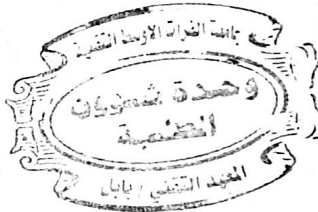 جامعة الفرات الاوسط التقنية
وحدة شؤون
الطلبة
المعهد التقني / بابل